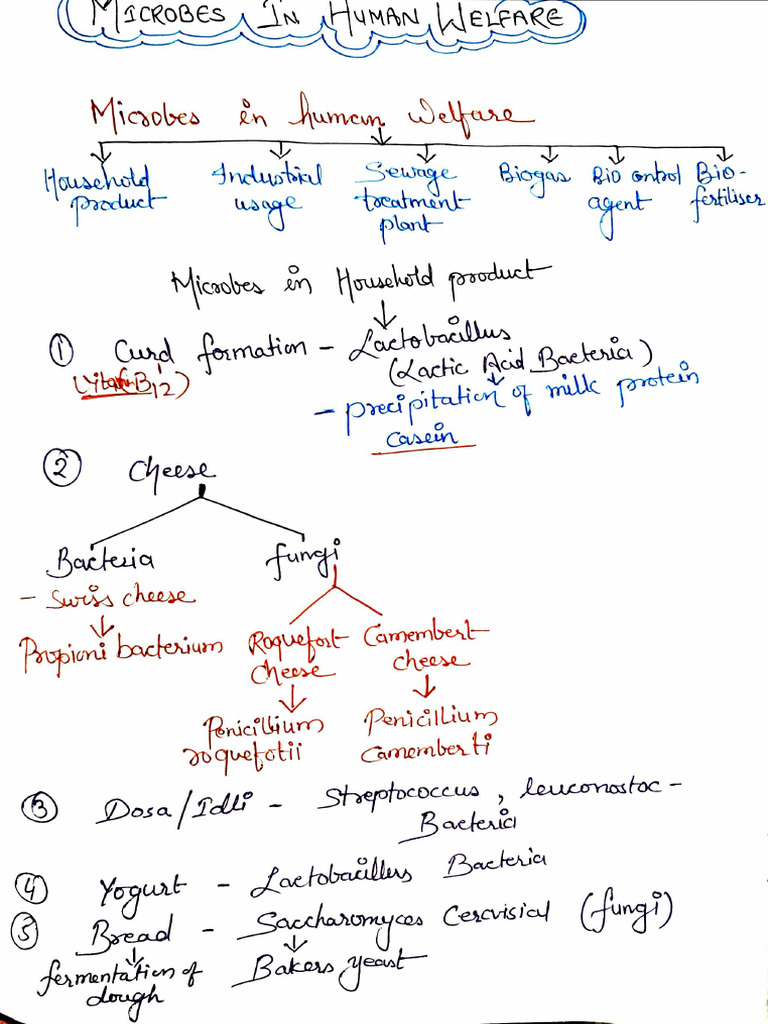 MICROBES IN HUMAN WELFARE
Microbes in human Welfare
Household product
Industrial usage
Sewage treatment plant
Biogas
Bio ontrol agent
Bio-fertiliser
Microbes in Household product
① Curd formation - Lactobacillus
(Lactic Acid Bacteria)
(Vitamin B12)
- precipitation of milk protein
casein
② Cheese
Bacteria
fungi
- Swiss cheese
Propioni bacterium
Roquefort cheese
Camembert cheese
Penicillium roquefotii
Penicillium Camemberti
③ Dosa/Idli - Streptococcus, leuconostoc -
Bacteria
④ Yogurt - Lactobacillus Bacteria
⑤ Bread - Saccharomyces Cervisial (fungi)
fermentation of dough
Bakers yeast